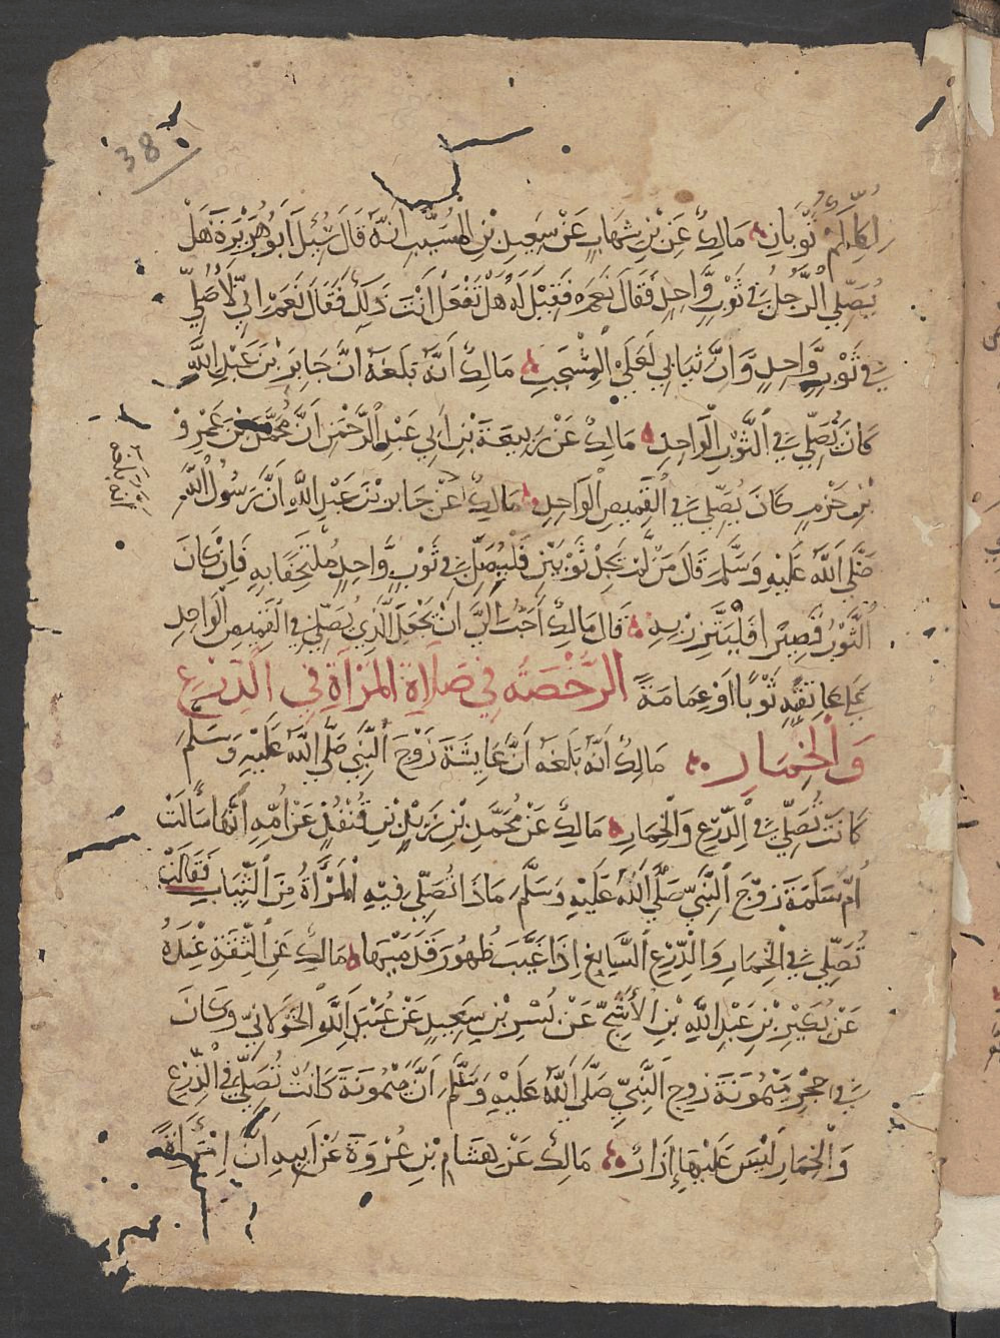 38
أَوَلِكُلِّكُمْ ثَوْبَانِ مَالِكٌ عَنِ بْنِ شِهَابٍ عَنْ سَعِيدِ بْنِ الْمُسَيِّبِ اَنَّهُ قَالَ سُئِلَ اَبُو هُرَيْرَةَ هَلْ
يُصَلِّي الرَّجُلُ فِي ثَوْبٍ وَّاحِدٍ فَقَالَ نَعَمْ فَقِيْلَ لَهُ هَلْ تَفْعَلُ اَنْتَ ذَلِكَ فَقَالَ نَعَمْ اِنِّي لَأُصَلِّي
فِي ثَوْبٍ وَّاحِدٍ وَّاِنَّ ثِيَابِي لَعَلَي الْمِشْجَبِ مَالِكٌ اَنَّهُ بَلَغَهُ اَنَّ جَابِرَ بْنَ عَبْدِ اللَّهِ
كَانَ يُصَلِّي فِي الثَّوْبِ الْوَاحِدِ مَالِكٌ عَنْ رَبِيعَةَ بْنِ اَبِي عَبْدِ الرَّحْمَنِ اَنَّ مُحَمَّدَ بْنَ عَمْرِو
بْنِ حَزْمٍ كَانَ يُصَلِّي فِي الْقَمِيصِ الْوَاحِدِ مَالِكٌ عَنْ جَابِرِ بْنِ عَبْدِ اللَّهِ اَنَّ رَسُولَ اللَّهِ
انه بلغه
صَلَّي اللَّهُ عَلَيْهِ وَسَلَّمَ قَالَ مَنْ لَّمْ يَجِدْ ثَوْبَيْنِ فَلْيُصَلِّ فِي ثَوْبٍ وَّاحِدٍ مُلْتَحِفًا بِهِ فَاِنْ كَانَ
الثَّوْبُ قَصِيْرًا فَلْيَتَّزِرْ بِهِ قَالَ مَالِكٌ اَحَبُّ اِلَيَّ اَنْ يَجْعَلَ الَّذِي يُصَلِّي فِي الْقَمِيصِ الْوَاحِدِ
عَلَي عَاتِقِهِ ثَوْبًا اَوْ عِمَامَةً الرُّخْصَةُ فِي صَلَاةِ الْمَرْأَةِ فِي الدِّرْعِ
وَالْخِمَارِ مَالِكٌ اَنَّهُ بَلَغَهُ اَنَّ عَايِشَةَ زَوْجَ النَّبِيِّ صَلَّي اللَّهُ عَلَيْهِ وَسَلَّمَ
كَانَتْ تُصَلِّي فِي الدِّرْعِ وَالْخِمَارِ مَالِكٌ عَنْ مُحَمَّدِ بْنِ زَيْدِ بْنِ قُنْفُذٍ عَنْ اُمِّهِ اَنَّهَا سَأَلَتْ
اُمَّ سَلَمَةَ زَوْجَ النَّبِيِّ صَلَّي اللَّهُ عَلَيْهِ وَسَلَّمَ مَاذَا تُصَلِّي فِيْهِ الْمَرْأَةُ مِنَ الثِّيَابِ فَقَالَتْ
تُصَلِّي فِي الْخِمَارِ وَالدِّرْعِ السَّابِغِ اِذَا غَيَّبَ ظُهُورَ قَدَمَيْهَا مَالِكٌ عَنِ الثِّقَةِ عِنْدَهُ
عَنْ بُكَيْرِ بْنِ عَبْدِ اللَّهِ بْنِ الْأَشَجِّ عَنْ بُسْرِ بْنِ سَعِيدٍ عَنْ عُبَيْدِ اللَّهِ الْخَوْلَانِيِّ وَكَانَ
فِي حَجْرِ مَيْمُونَةَ زَوْجِ النَّبِيِّ صَلَّي اللَّهُ عَلَيْهِ وَسَلَّمَ اَنَّ مَيْمُونَةَ كَانَتْ تُصَلِّي فِي الدِّرْعِ
وَالْخِمَارِ لَيْسَ عَلَيْهَا إِزَارٌ مَالِكٌ عَنْ هِشَامِ بْنِ عُرْوَةَ عَنْ اَبِيهِ اَنَّ امْرَأَةً